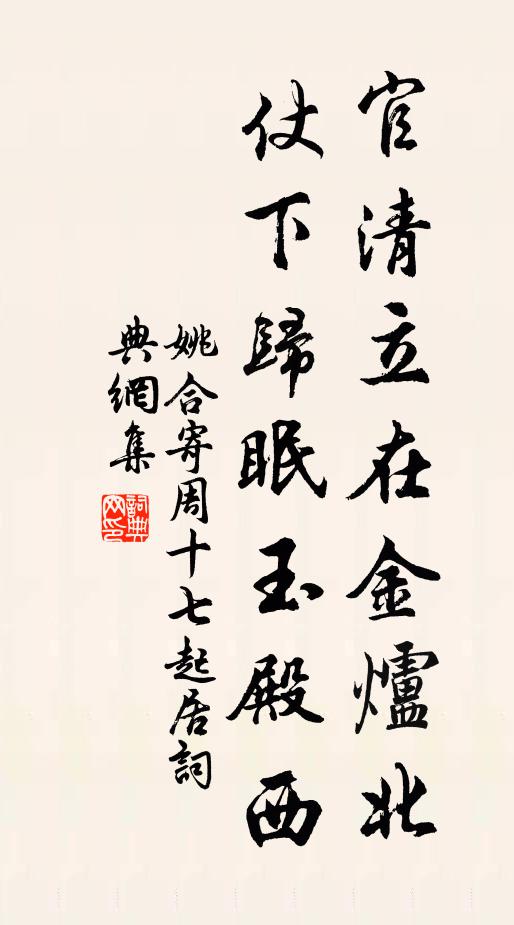 官清立在金爐北
仗下歸眠玉殿西
姚合寄周十七起居詞
典網集
詞典網印